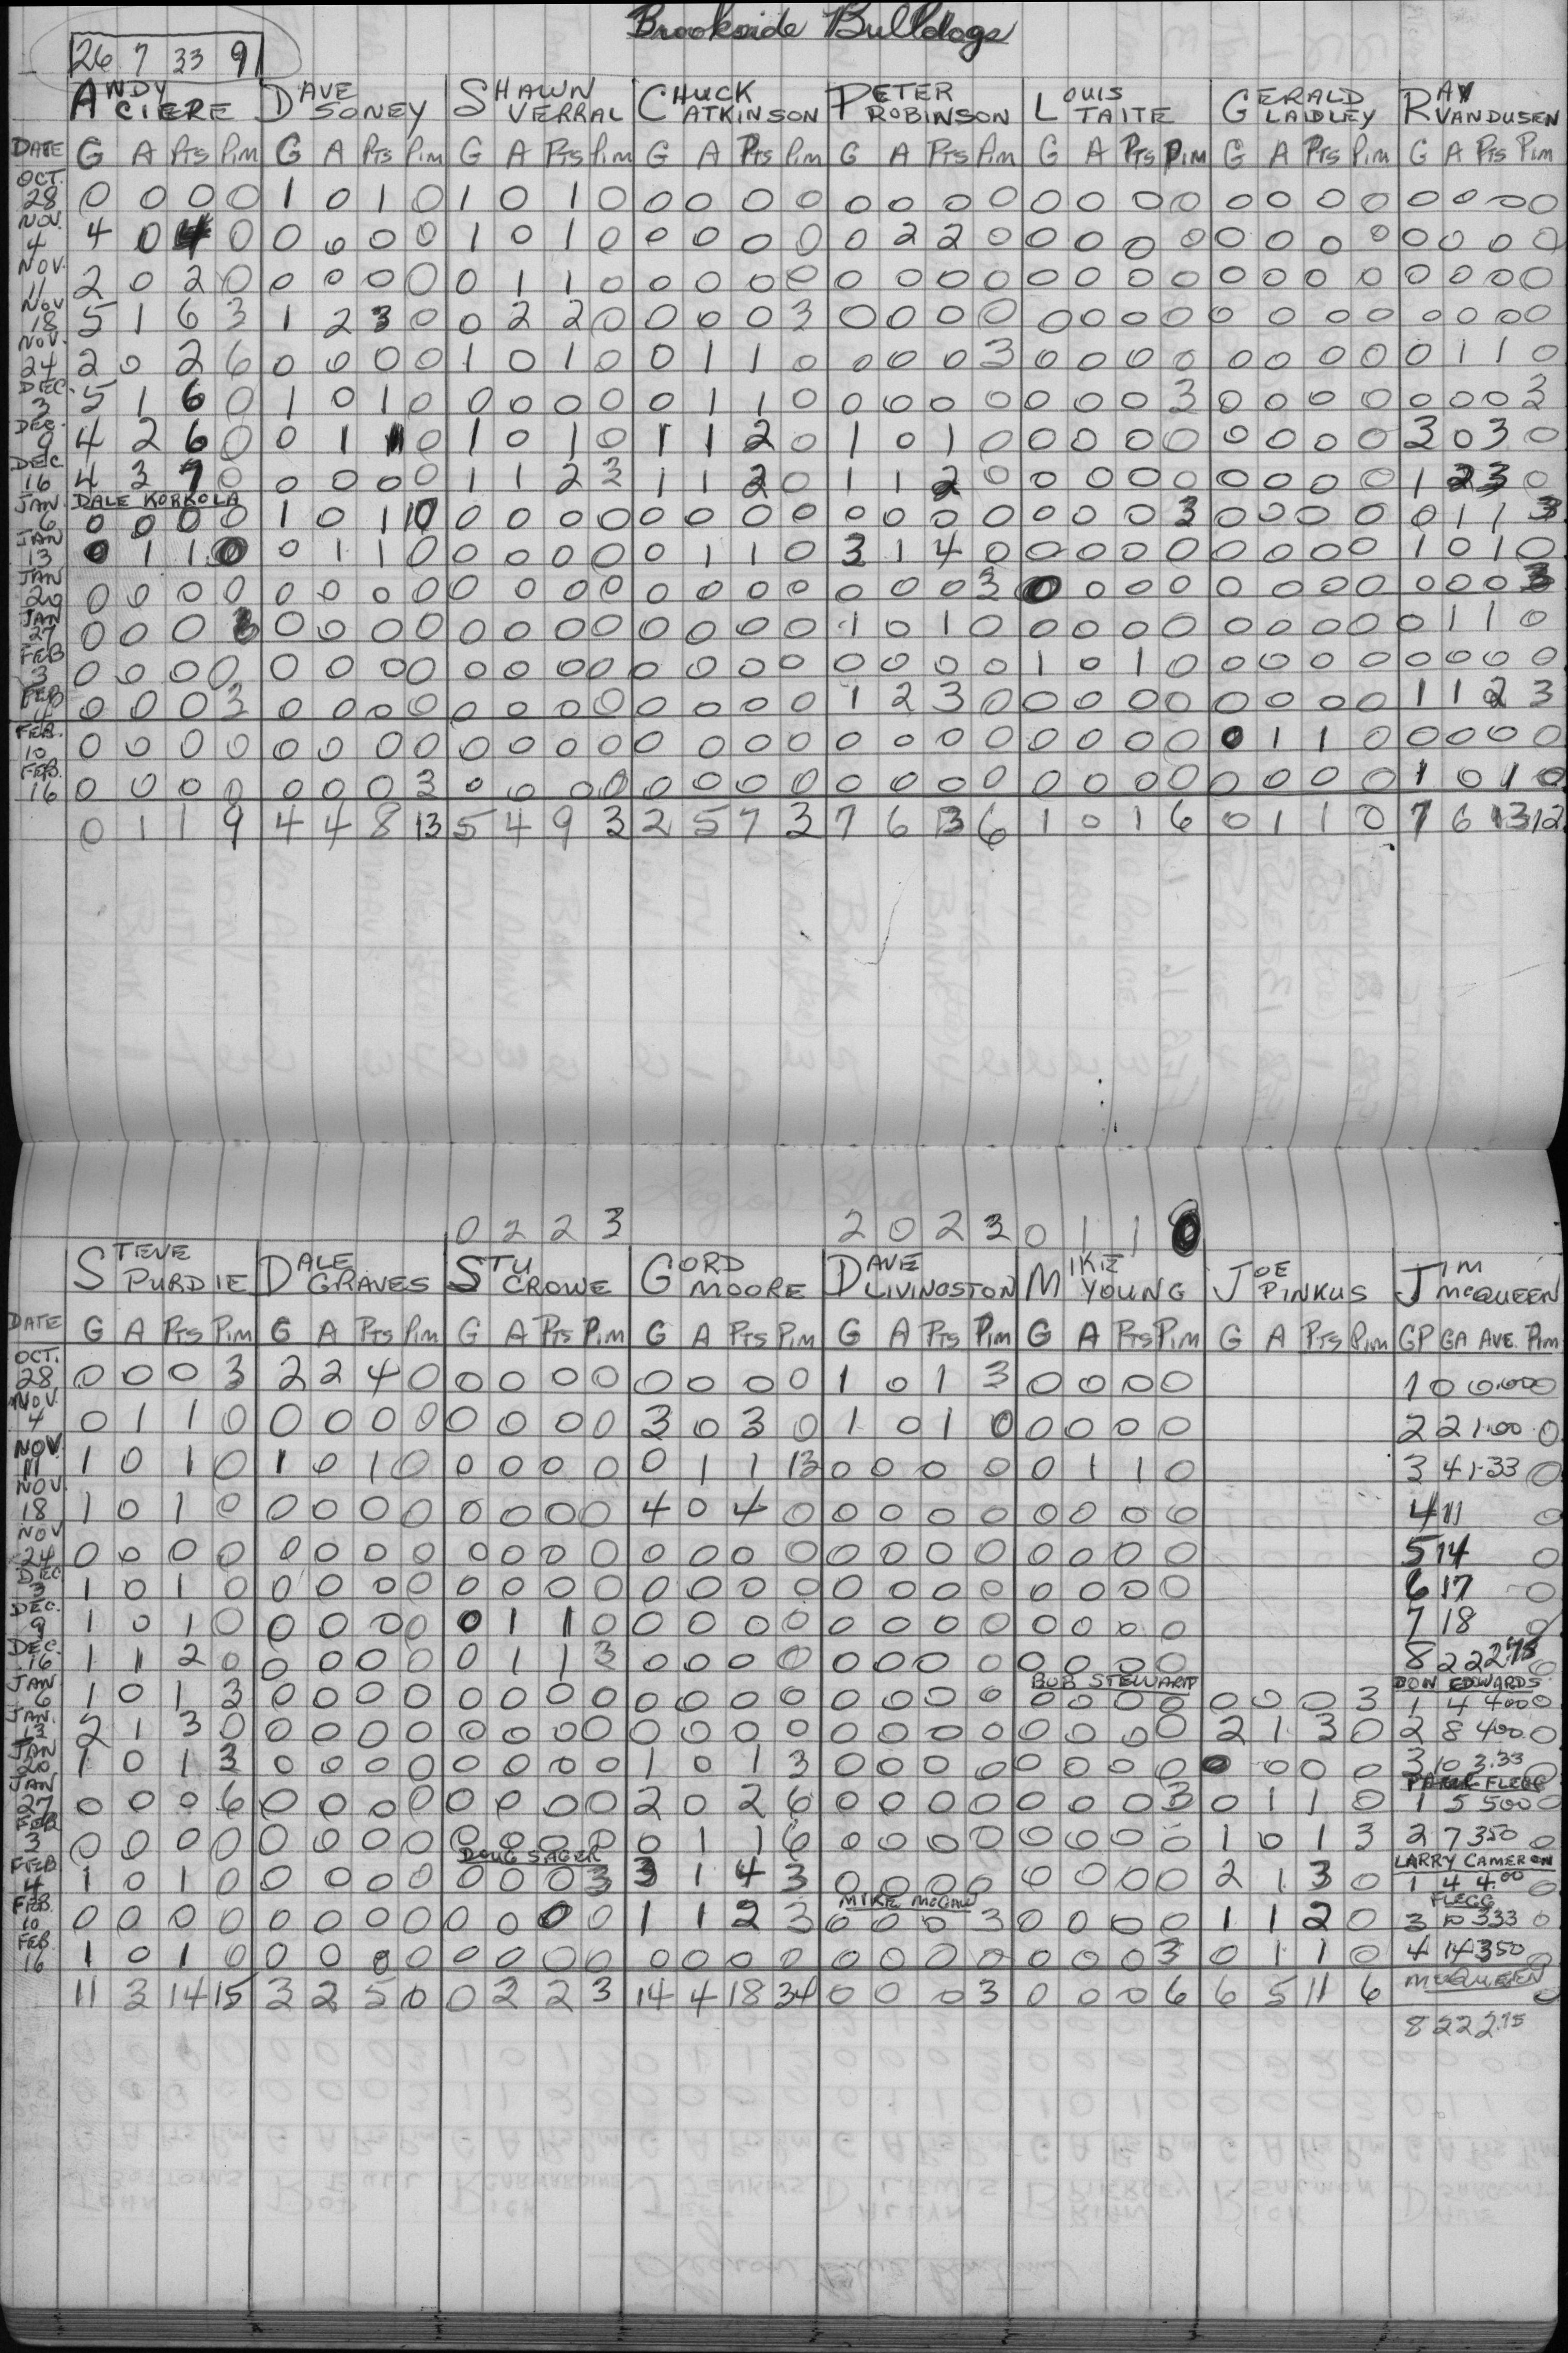 Brookside Bulldogs
26 7 33 9
ANDY CIERE DAVE SONEY SHAWN VERRAL CHUCK ATKINSON PETER ROBINSON LOUIS TAITE GERALD LAIDLEY RAY VANDUSEN
DATE G A Pts Pim G A Pts Pim G A Pts Pim G A Pts Pim G A Pts Pim G A Pts Pim G A Pts Pim G A Pts Pim
OCT. 28 0 0 0 0 1 0 1 0 1 0 1 0 0 0 0 0 0 0 0 0 0 0 0 0 0 0 0 0 0 0 0 0
NOV. 4 4 0 4 0 0 0 0 0 1 0 1 0 0 0 0 0 0 2 2 0 0 0 0 0 0 0 0 0 0 0 0 0
NOV. 11 2 0 2 0 0 0 0 0 0 1 1 0 0 0 0 0 0 0 0 0 0 0 0 0 0 0 0 0 0 0 0 0
NOV 18 5 1 6 3 1 2 3 0 0 2 2 0 0 0 0 3 0 0 0 0 0 0 0 0 0 0 0 0 0 0 0 0
NOV. 24 2 0 2 6 0 0 0 0 1 0 1 0 0 1 1 0 0 0 0 3 0 0 0 0 0 0 0 0 0 1 1 0
DEC. 3 5 1 6 0 1 0 1 0 0 0 0 0 0 1 1 0 0 0 0 0 0 0 0 3 0 0 0 0 0 0 0 3
DEC. 9 4 2 6 0 0 1 1 0 1 0 1 0 1 1 2 0 1 0 1 0 0 0 0 0 0 0 0 0 3 0 3 0
DEC. 16 4 3 7 0 0 0 0 0 1 1 2 3 1 1 2 0 1 1 2 0 0 0 0 0 0 0 0 0 1 2 3 0
DALE KORKOLA
JAN. 6 0 0 0 0 1 0 1 10 0 0 0 0 0 0 0 0 0 0 0 0 0 0 0 3 0 0 0 0 0 1 1 3
JAN 13 0 1 1 0 0 1 1 0 0 0 0 0 0 1 1 0 3 1 4 0 0 0 0 0 0 0 0 0 1 0 1 0
JAN 20 0 0 0 0 0 0 0 0 0 0 0 0 0 0 0 0 0 0 0 3 0 0 0 0 0 0 0 0 0 0 0 3
JAN 27 0 0 0 3 0 0 0 0 0 0 0 0 0 0 0 0 1 0 1 0 0 0 0 0 0 0 0 0 0 1 1 0
FEB 3 0 0 0 0 0 0 0 0 0 0 0 0 0 0 0 0 0 0 0 0 1 0 1 0 0 0 0 0 0 0 0 0
FEB 4 0 0 0 3 0 0 0 0 0 0 0 0 0 0 0 0 1 2 3 0 0 0 0 0 0 0 0 0 1 1 2 3
FEB. 10 0 0 0 0 0 0 0 0 0 0 0 0 0 0 0 0 0 0 0 0 0 0 0 0 0 1 1 0 0 0 0 0
FEB. 16 0 0 0 0 0 0 0 3 0 0 0 0 0 0 0 0 0 0 0 0 0 0 0 0 0 0 0 0 1 0 1 0
0 1 1 9 4 4 8 13 5 4 9 3 2 5 7 3 7 6 13 6 1 0 1 6 0 1 1 0 7 6 13 12
0 2 2 3 2 0 2 3 0 1 1 0
STEVE PURDIE DALE GRAVES STU CROWE GORD MOORE DAVE LIVINGSTON MIKE YOUNG JOE PINKUS JIM McQUEEN
DATE G A Pts Pim G A Pts Pim G A Pts Pim G A Pts Pim G A Pts Pim G A Pts Pim G A Pts Pim GP GA AVE. Pim
OCT. 28 0 0 0 3 2 2 4 0 0 0 0 0 0 0 0 0 1 0 1 3 0 0 0 0 1 0 0.00 0
NOV. 4 0 1 1 0 0 0 0 0 0 0 0 0 3 0 3 0 1 0 1 0 0 0 0 0 2 2 1.00 0
NOV. 11 1 0 1 0 1 0 1 0 0 0 0 0 0 1 1 13 0 0 0 0 0 1 1 0 3 4 1.33 0
NOV. 18 1 0 1 0 0 0 0 0 0 0 0 0 4 0 4 0 0 0 0 0 0 0 0 0 4 11 0
NOV 24 0 0 0 0 0 0 0 0 0 0 0 0 0 0 0 0 0 0 0 0 0 0 0 0 5 14 0
DEC 3 1 0 1 0 0 0 0 0 0 0 0 0 0 0 0 0 0 0 0 0 0 0 0 0 6 17 0
DEC. 9 1 0 1 0 0 0 0 0 0 1 1 0 0 0 0 0 0 0 0 0 0 0 0 0 7 18 0
DEC. 16 1 1 2 0 0 0 0 0 0 1 1 3 0 0 0 0 0 0 0 0 0 0 0 0 8 22 2.75 0
BOB STEWART DON EDWARDS
JAN 6 1 0 1 3 0 0 0 0 0 0 0 0 0 0 0 0 0 0 0 0 0 0 0 0 0 0 0 3 1 4 4.00 0
JAN. 13 2 1 3 0 0 0 0 0 0 0 0 0 0 0 0 0 0 0 0 0 0 0 0 0 2 1 3 0 2 8 4.00 0
JAN 20 1 0 1 3 0 0 0 0 0 0 0 0 1 0 1 3 0 0 0 0 0 0 0 0 0 0 0 0 3 10 3.33 0
FLEGG
JAN 27 0 0 0 6 0 0 0 0 0 0 0 0 2 0 2 6 0 0 0 0 0 0 0 3 0 1 1 0 1 5 5.00 0
FEB 3 0 0 0 0 0 0 0 0 0 0 0 0 0 1 1 6 0 0 0 0 0 0 0 0 1 0 1 3 2 7 3.50 0
DOUG SAGER LARRY CAMERON
FEB 4 1 0 1 0 0 0 0 0 0 0 0 3 3 1 4 3 0 0 0 0 0 0 0 0 2 1 3 0 1 4 4.00 0
MIKE McCaw FLEGG
FEB. 10 0 0 0 0 0 0 0 0 0 0 0 0 1 1 2 3 0 0 0 3 0 0 0 0 1 1 2 0 3 10 3.33 0
FEB. 16 1 0 1 0 0 0 0 0 0 0 0 0 0 0 0 0 0 0 0 0 0 0 0 3 0 1 1 0 4 14 3.50 0
11 3 14 15 3 2 5 0 0 2 2 3 14 4 18 34 0 0 0 3 0 0 0 6 6 5 11 6 McQUEEN 0
8 22 2.75